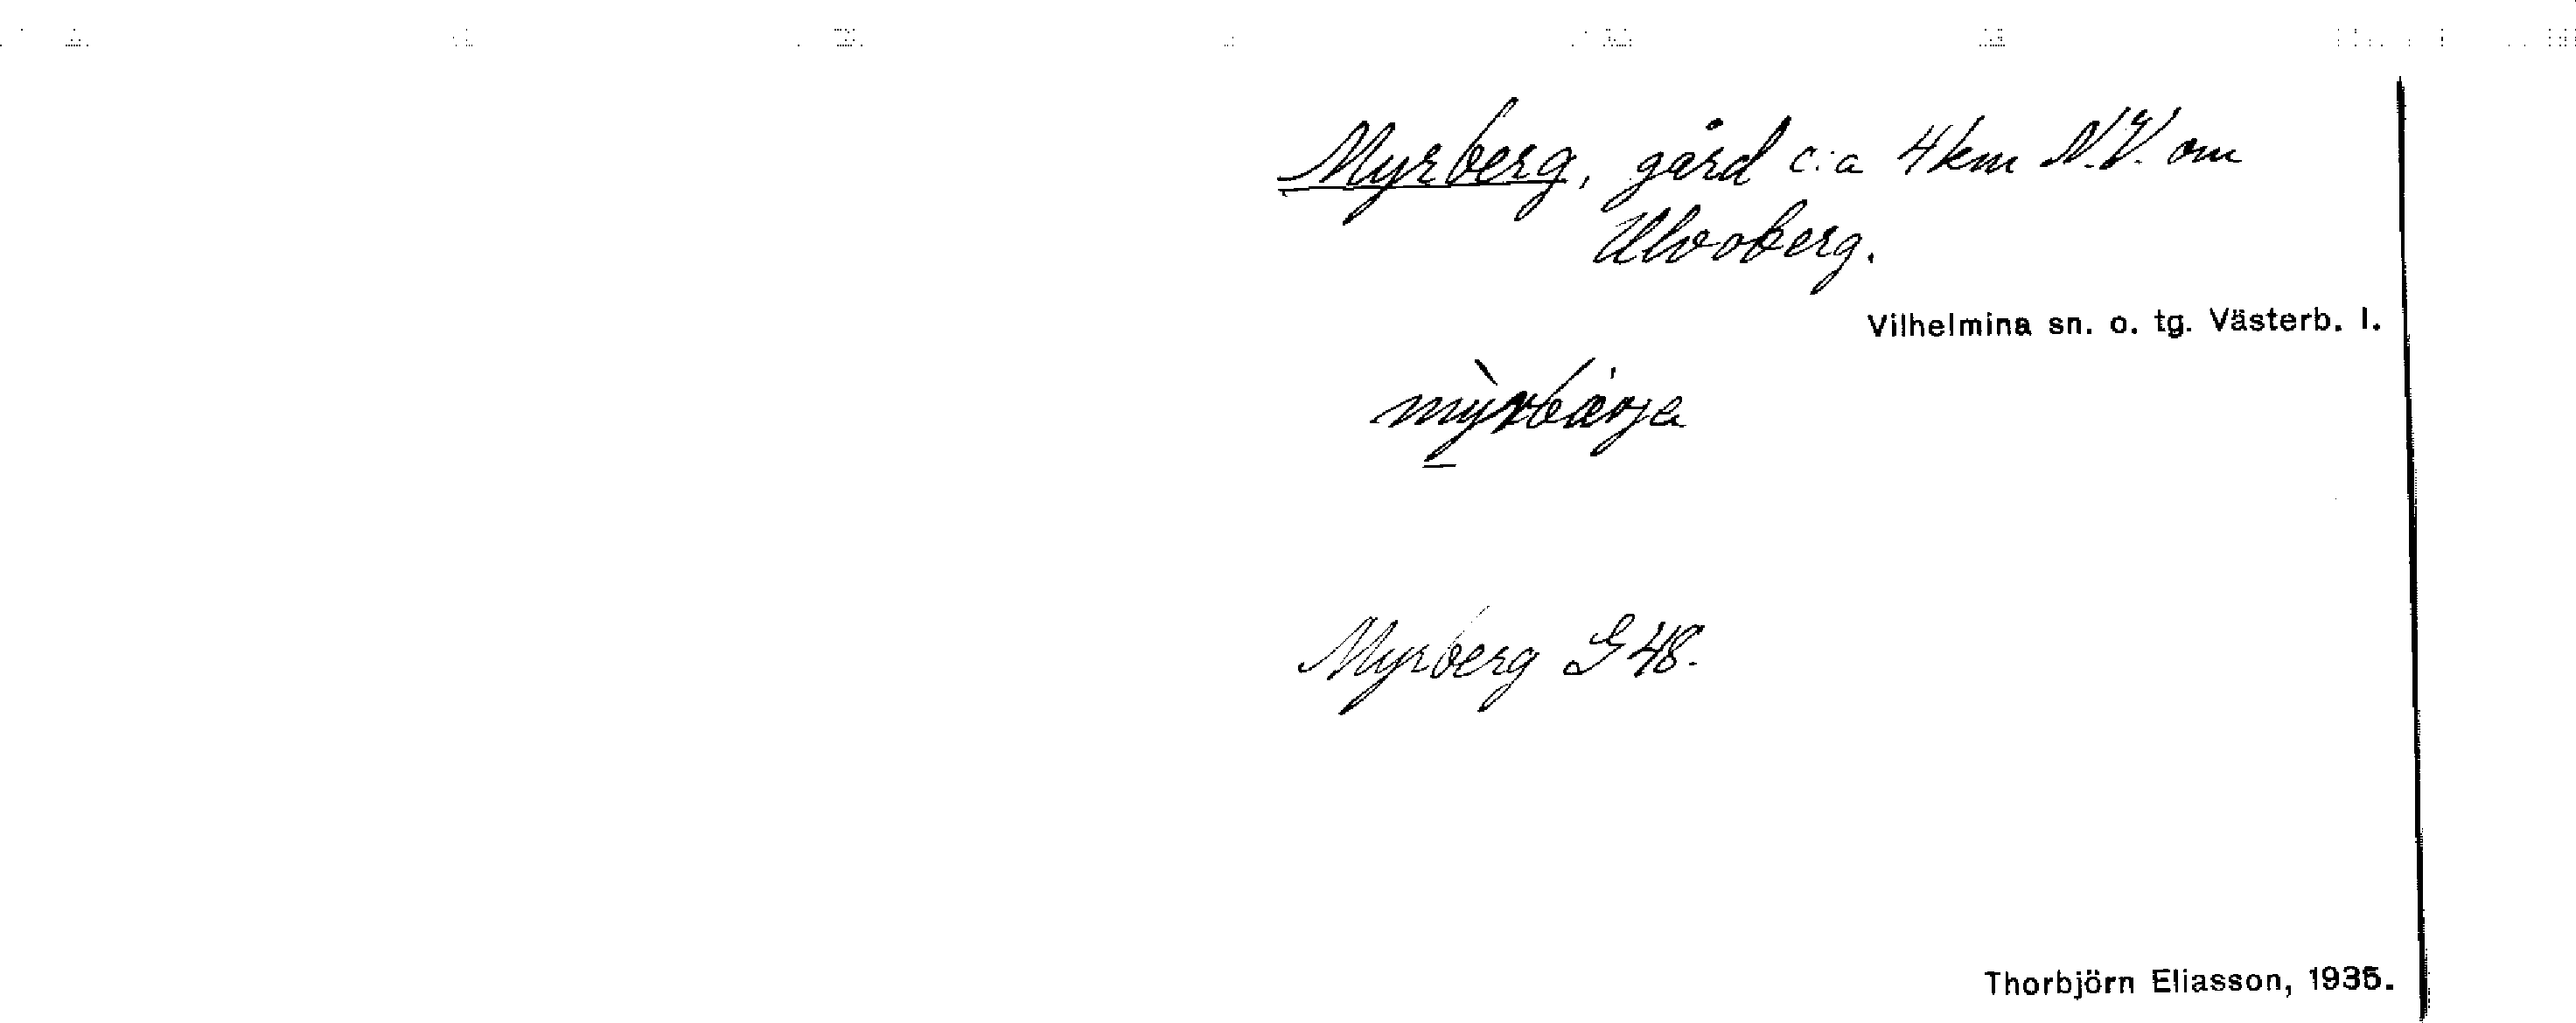 Myrberg, gård c:a 4 km N.V. om
Ulvoberg.
Vilhelmina sn. o. tg. Västerb. l.
mỳrbærja
Myrberg G 48.
Thorbjörn Eliasson, 1935.